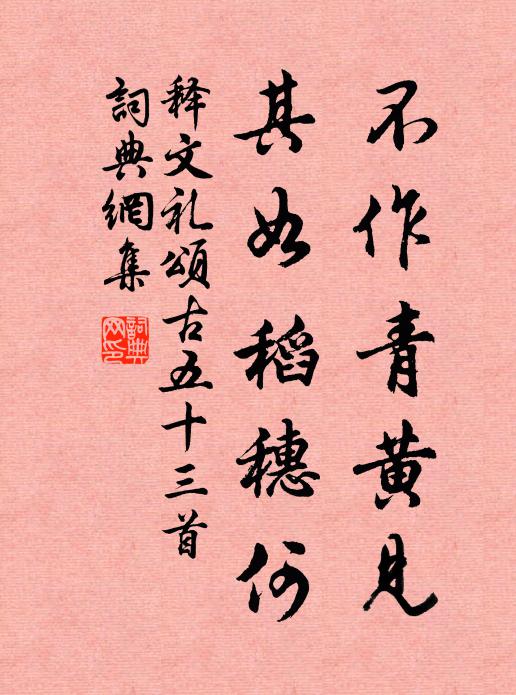 不作青黄见
其如稻穗何
释文礼颂古五十三首
詞典網集
詞典网印